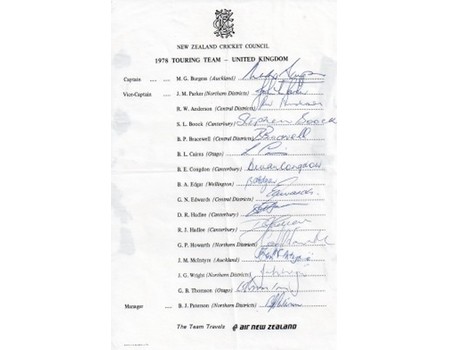 NEW ZEALAND CRICKET COUNCIL
1978 TOURING TEAM – UNITED KINGDOM
Captain .... .... M. G. Burgess (Auckland)
Vice-Captain .... J. M. Parker (Northern Districts)
R. W. Anderson (Central Districts)
S. L. Boock (Canterbury) Stephen Boock
B. P. Bracewell (Central Districts)
B. L. Cairns (Otago)
B. E. Congdon (Canterbury) Bevan Congdon
B. A. Edgar (Wellington)
G. N. Edwards (Central Districts)
D. R. Hadlee (Canterbury)
R. J. Hadlee (Canterbury)
G. P. Howarth (Northern Districts)
J. M. McIntyre (Auckland)
J. G. Wright (Northern Districts)
G. B. Thomson (Otago)
Manager .... .... B. J. Paterson (Northern Districts)
The Team Travels air new zealand